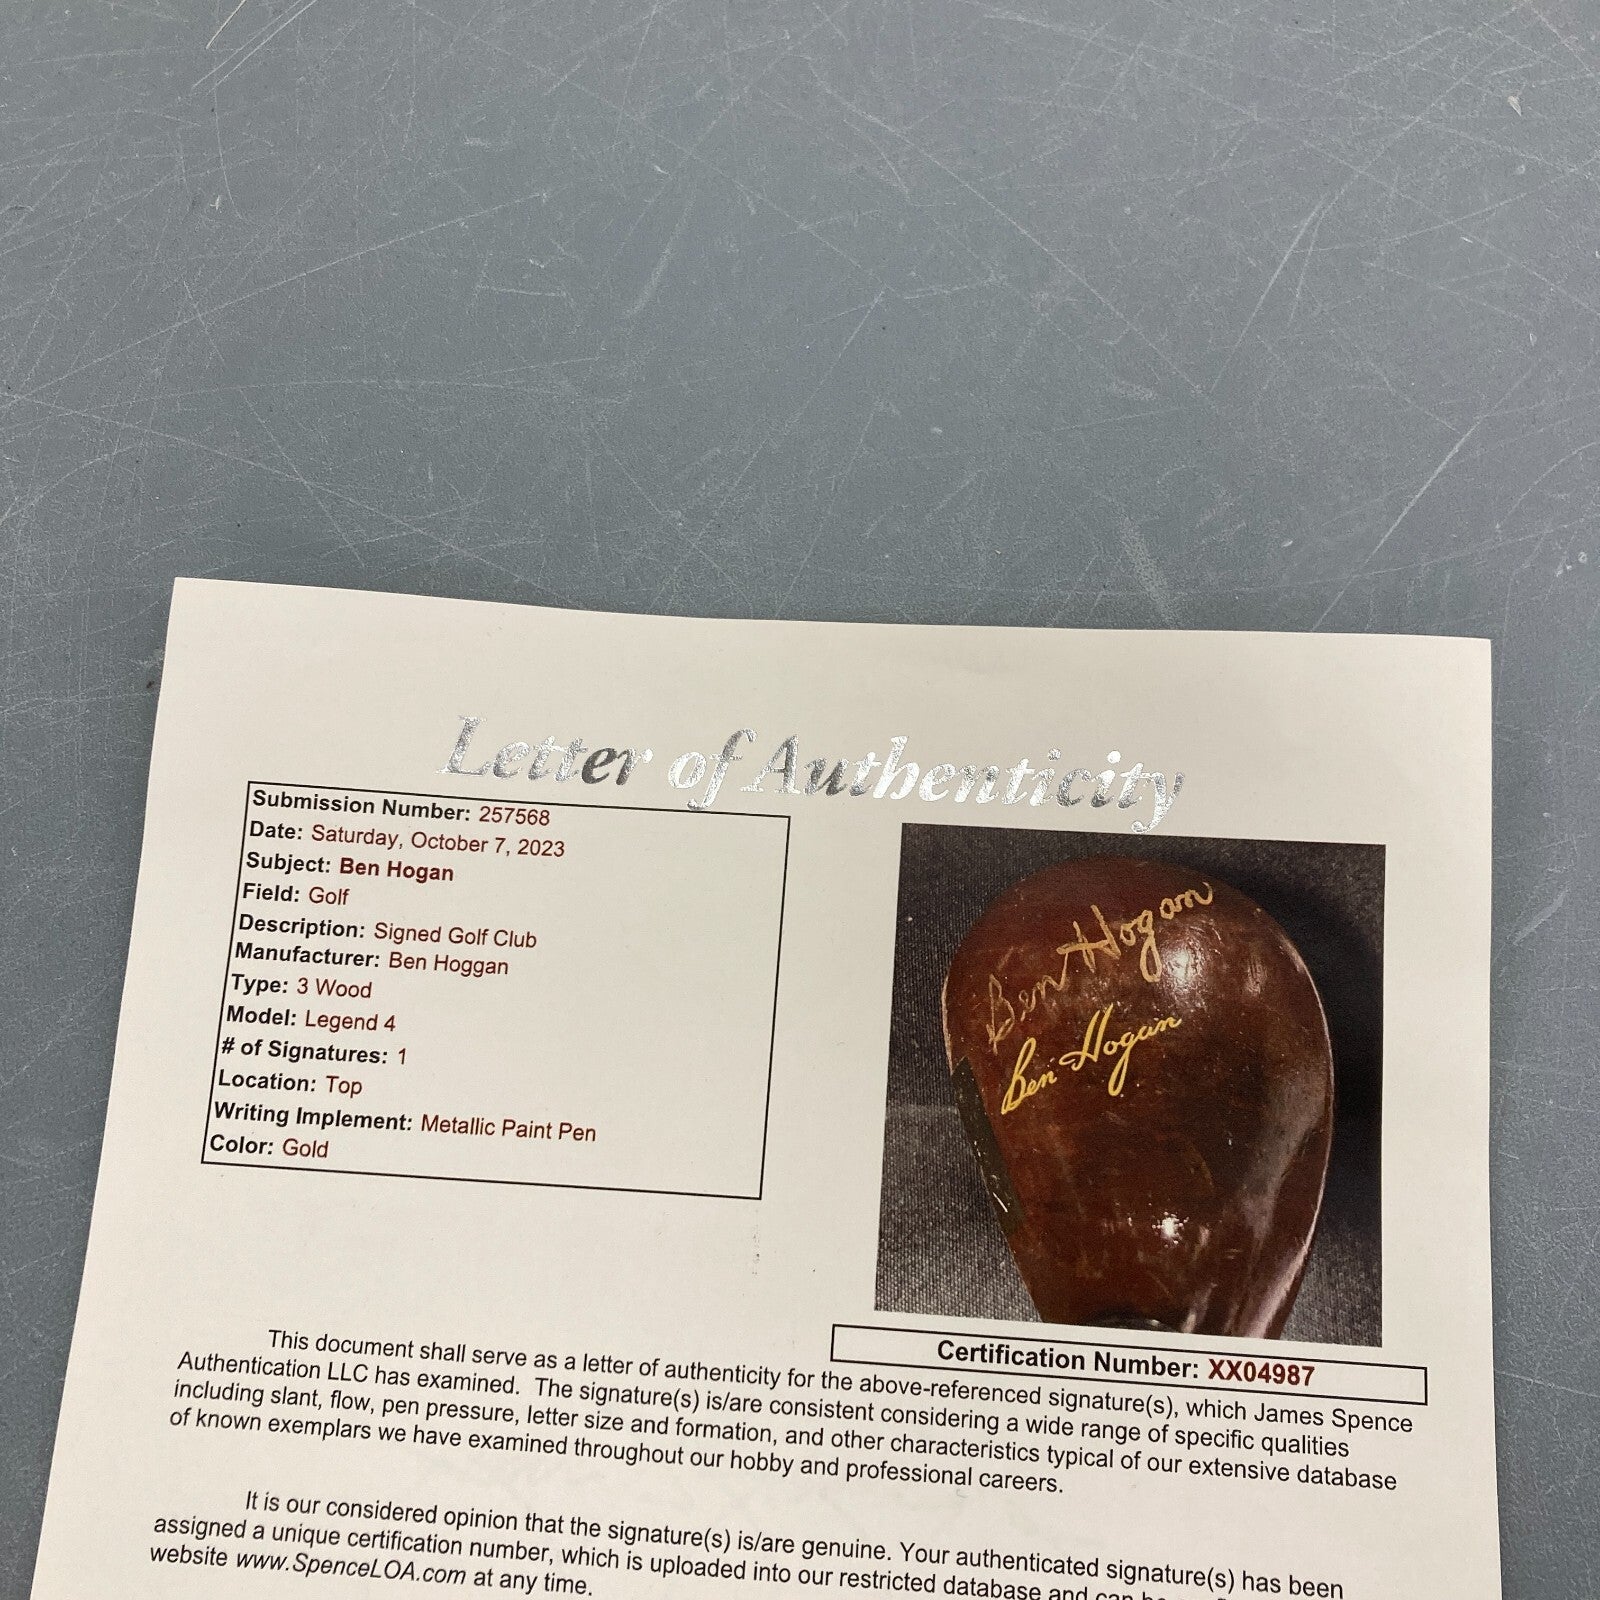 Letter of Authenticity
Submission Number: 257568
Date: Saturday, October 7, 2023
Subject: Ben Hogan
Field: Golf
Description: Signed Golf Club
Manufacturer: Ben Hoggan
Type: 3 Wood
Model: Legend 4
# of Signatures: 1
Location: Top
Writing Implement: Metallic Paint Pen
Color: Gold
Ben Hogan
Ben Hogan
Certification Number: XX04987
This document shall serve as a letter of authenticity for the above-referenced signature(s), which James Spence
Authentication LLC has examined. The signature(s) is/are consistent considering a wide range of specific qualities
including slant, flow, pen pressure, letter size and formation, and other characteristics typical of our extensive database
of known exemplars we have examined throughout our hobby and professional careers.
It is our considered opinion that the signature(s) is/are genuine. Your authenticated signature(s) has been
assigned a unique certification number, which is uploaded into our restricted database and can be
website www.SpenceLOA.com at any time.